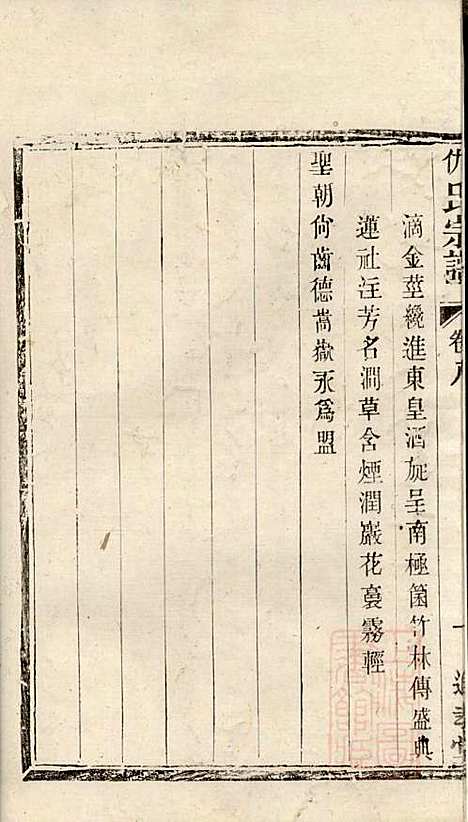 氏宗譜 卷八
滴金莖纔進東皇酒旋呈南極箇竹林傳盛典
蓮社注芳名澗草含煙潤巖花裛霧輕
聖朝尙齒德嵩嶽永爲盟